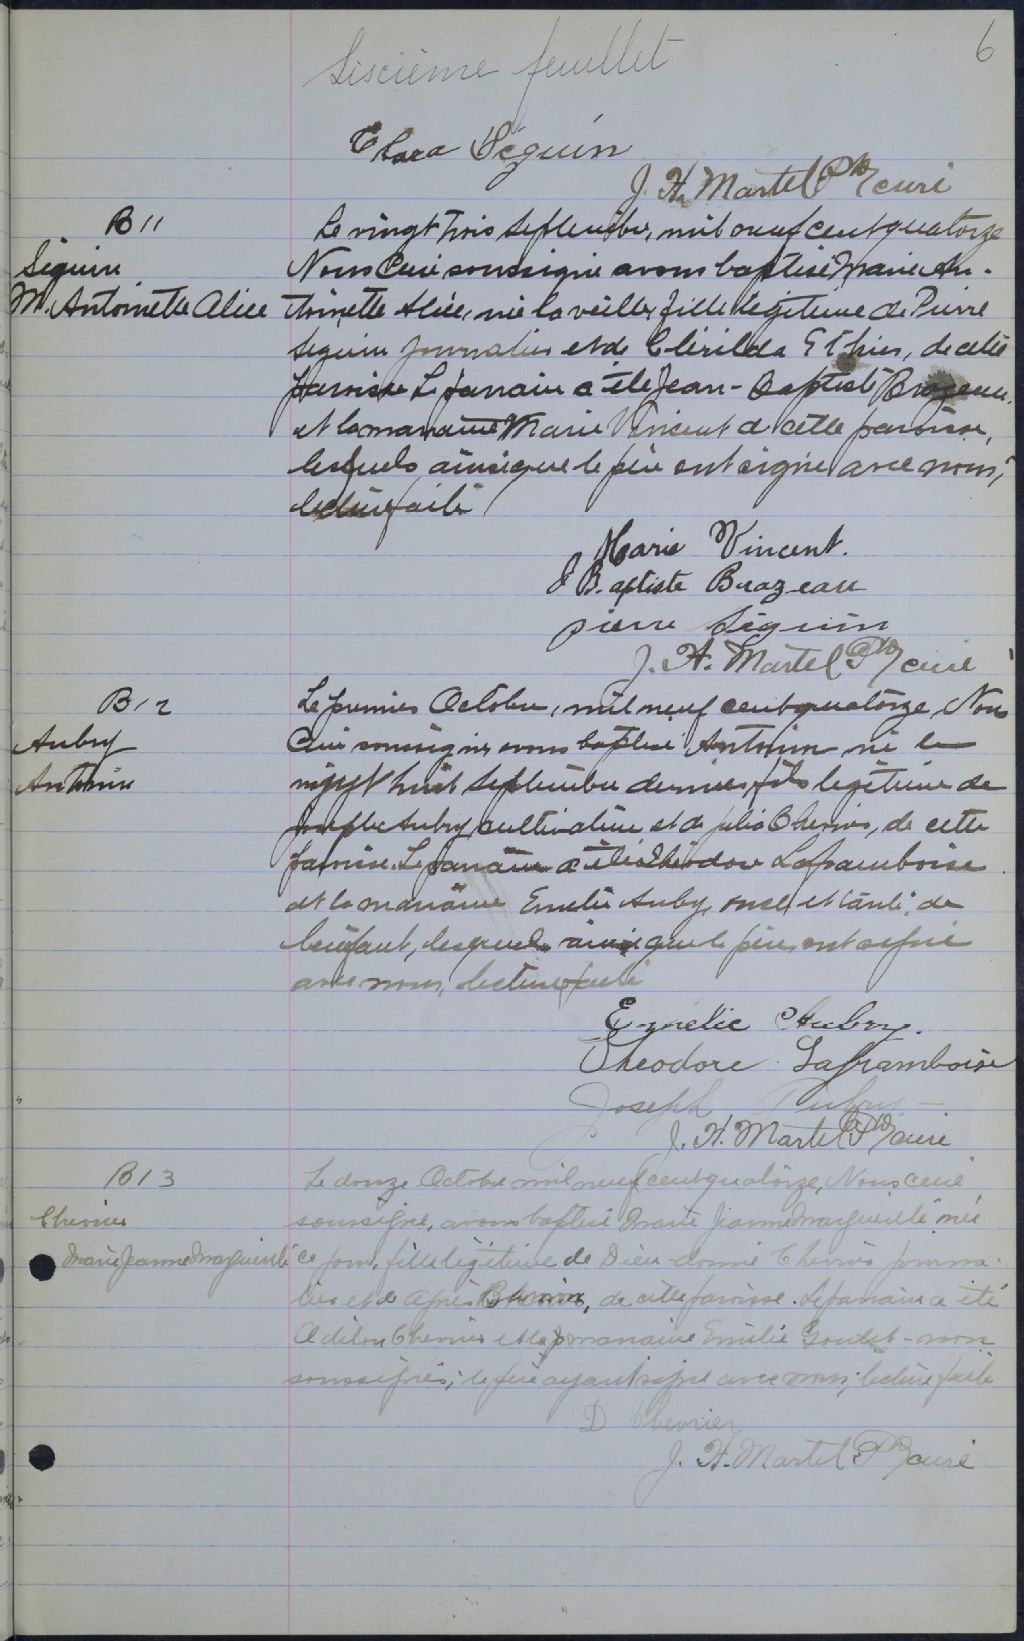 6
Sixcième feuillet
Clara Séguin
J. H. Martel Ptre curé
B 11
Le vingt trois Septembre, mil neuf cent quatorze
Séguin
Nous Curé soussigné avons baptisé Marie An-
M. Antoinette Alice
toinette Alice, née la veille, fille légitime de Pierre
Seguin journalier et de Clérilda Ethier, de cette
paroisse Le parrain a été Jean-Baptiste Brazeau,
et la marraine Marie Vincent de cette paroisse,
lesquels ainsi que le père ont signé avec nous,
lecture faite
Marie Vincent.
J B.aptiste Brazeau
pierre Séguin
J. H. Martel Ptre curé
B 12
Le premier Octobre, mil neuf cent quatorze, Nous
Aubry
Curé soussigné, avons baptisé Antonin né le
Antonin
vingt huit Septembre dernier, fils légitime de
Joseph Aubry, cultivateur et de Julia Chevrier, de cette
paroisse. Le parrain a été Théodore Laframboise
et la marraine Emélie Aubry, oncle et tante de
l'enfant, lesquels ainsi que le père, ont signé
avec nous, lecture faite
Emélie Aubry.
Theodore Laframboise
Joseph Aubry
J. H. Martel Ptre curé
B 13
Le douze Octobre mil neuf cent quatorze, Nous curé
Chevrier
soussigné, avons baptisé Marie Jeanne Marguerite née
Marie Jeanne Marguerite
ce jour, fille légitime de Dieu-donné Chevrier journa-
lier et de, de cette paroisse. Le parrain a été
Odilon Chevrier et la marraine Emélie Goulet - non
soussignés; le père ayant signé avec nous; lecture faite
D Chevrier
J. H. Martel Ptre curé